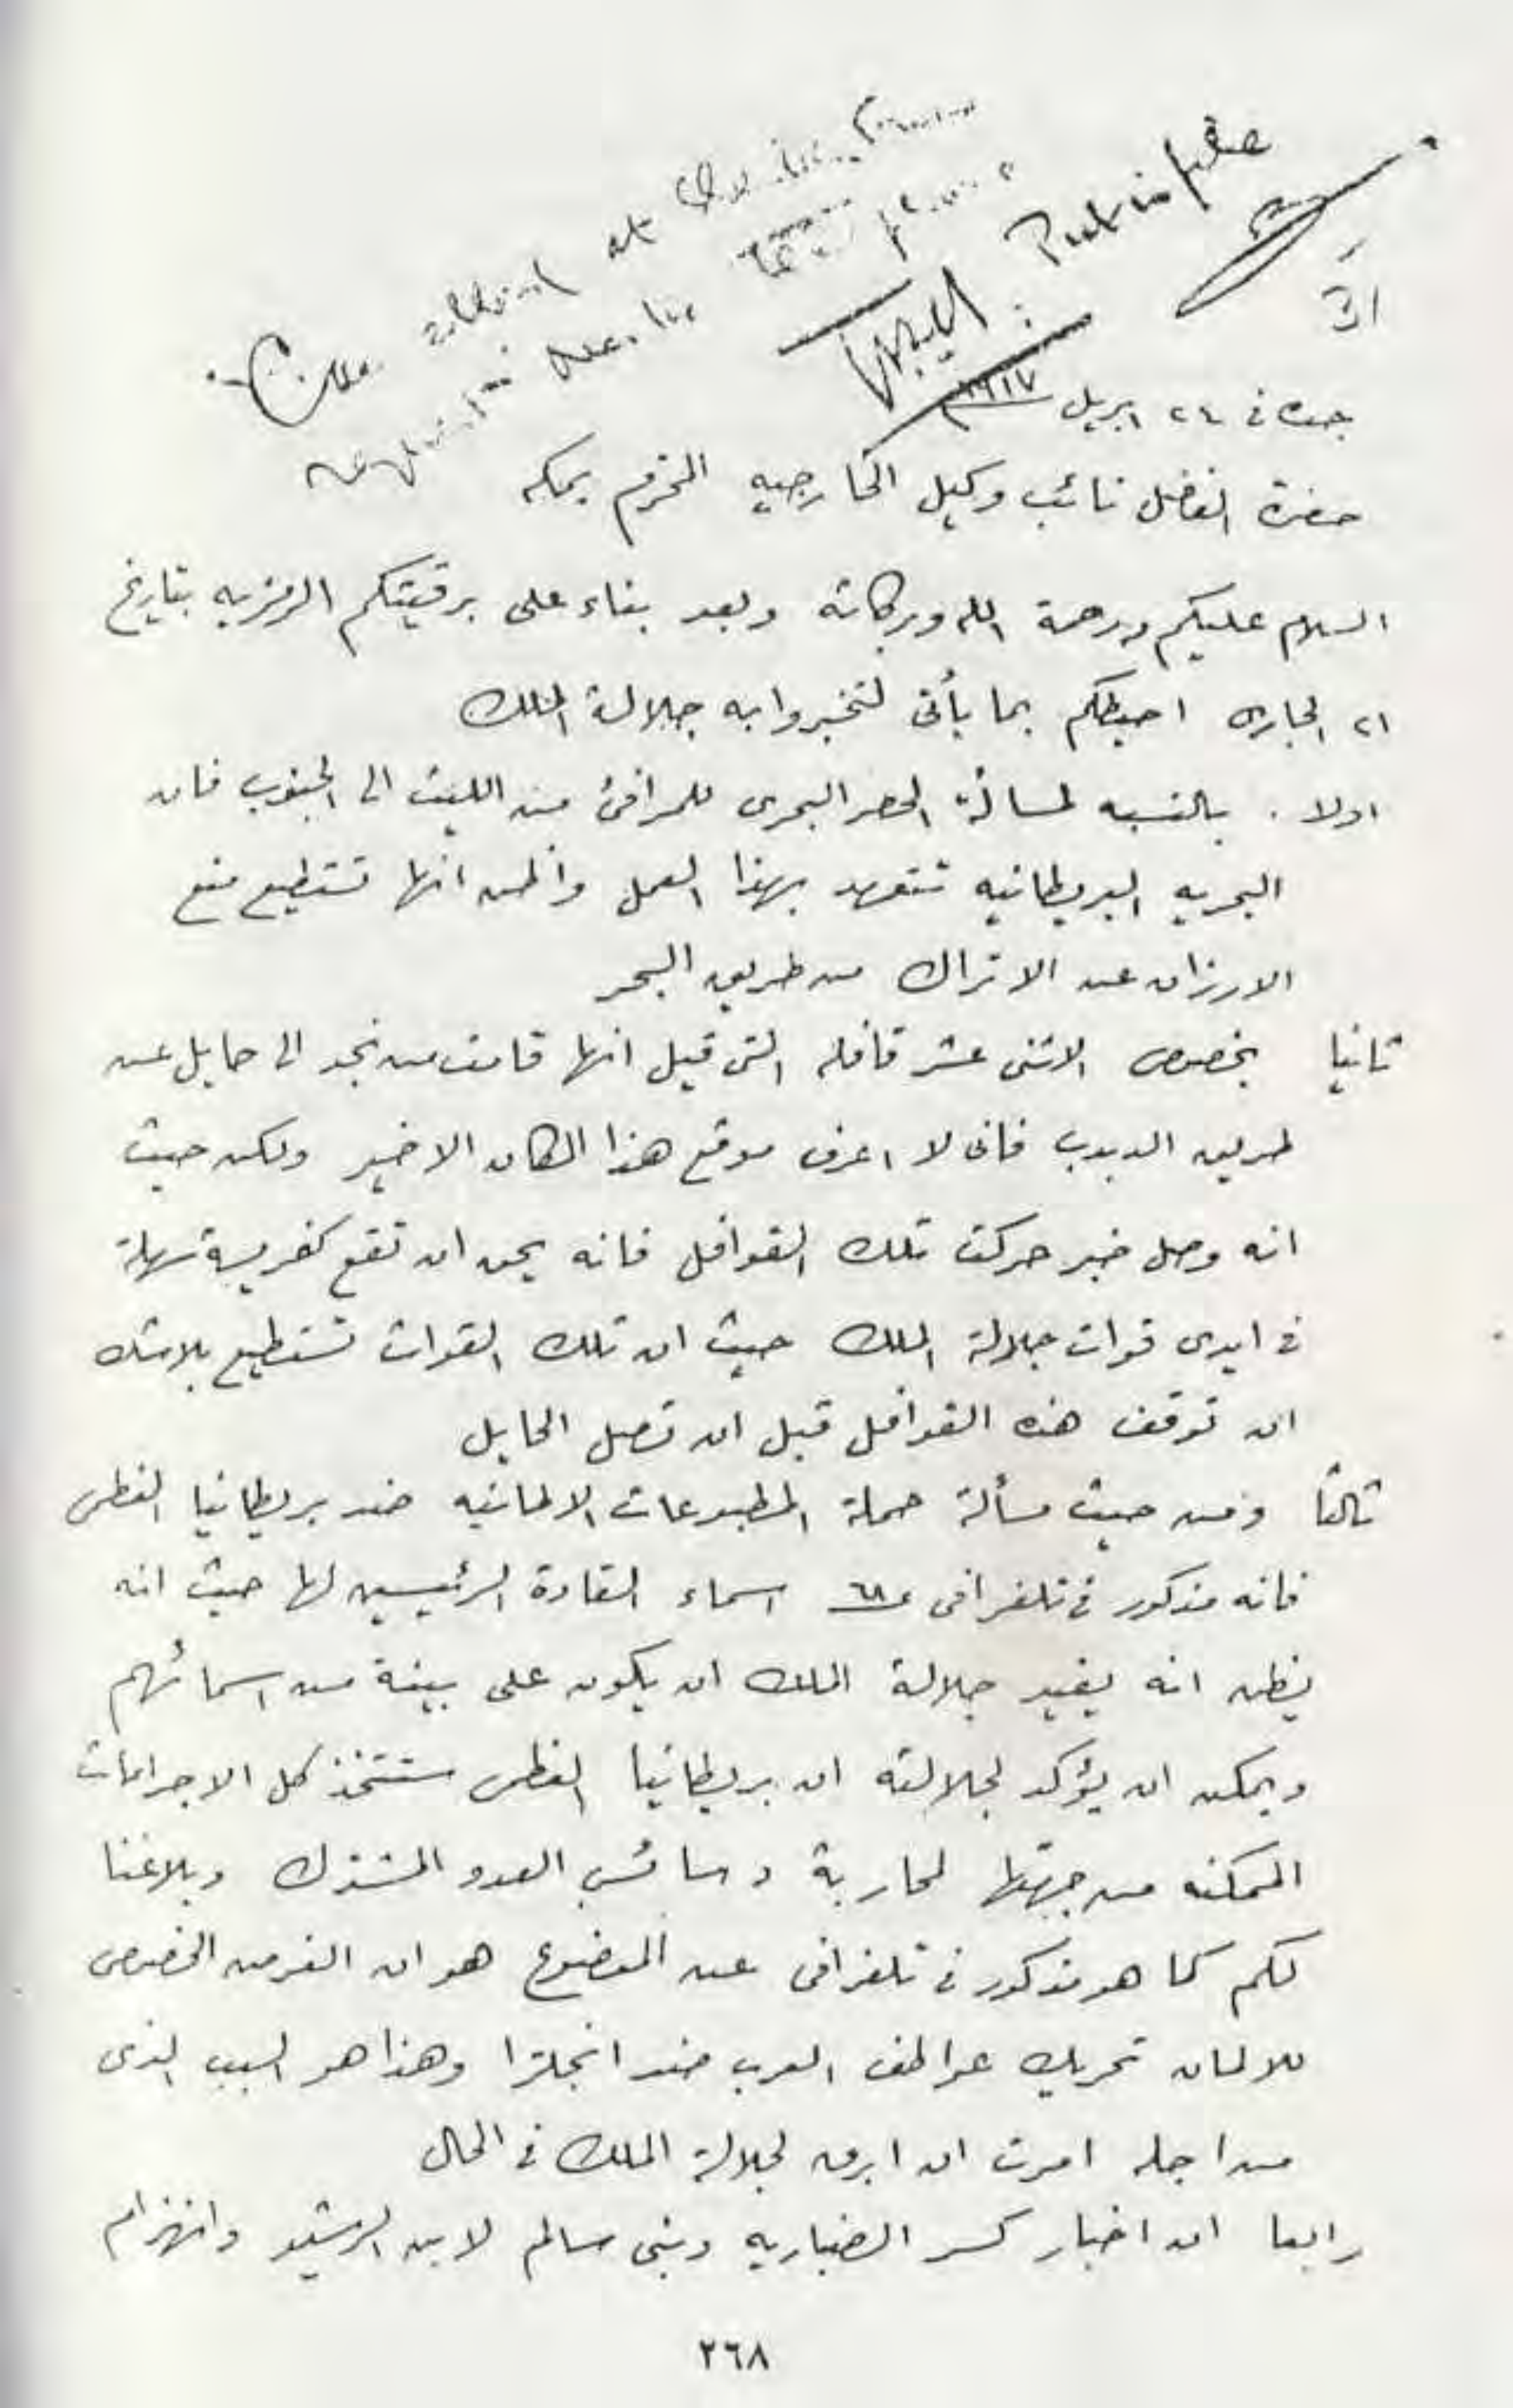 جده في ٢٤ ابريل ١٩١٧
حضرة الفاضل نائب وكيل الخارجيه المحترم بمكه
السلام عليكم ورحمة الله وبركاته وبعد بناء على برقيتكم الرمزيه بتاريخ
٢١ الجارى احيطكم بما يأتى لتخبروا به جلالة الملك
اولا . بالنسبه لمسألة الحصر البحرى للمرافئ من الليث الى الجنوب فان
البحريه البريطانيه تتعهد بهذا العمل واظن انها تستطيع منع
الارزاق عن الاتراك من طريق البحر
ثانيا بخصوص الاثنى عشر قافله التى قيل انها قامت من نجد الى حايل عن
طريق الدبدب فانى لا اعرف موقع هذا المكان الاخير ولكن حيث
انه وصل خبر حركت تلك القوافل فانه يحق ان تقع كفريسة سهلة
في ايدى قوات جلالة الملك حيث ان تلك القوات تستطيع بلا شك
ان توقف هذه القوافل قبل ان تصل الحايل
ثالثا ومن حيث مسألة حملة المطبوعات الالمانيه ضد بريطانيا العظمى
فانه مذكور في تلغرافى اسماء القادة الرئيسين لها حيث انه
يظن انه يفيد جلالة الملك ان يكون على بينة من اسمائهم
ويمكن ان يؤكد لجلالته ان بريطانيا العظمى ستتخذ كل الاجراءات
الممكنه من جهتها لمحاربة دسائس العدو المشترك وبلاغنا
لكم كما هو مذكور في تلغرافى عن الموضوع هو ان الغرض الخصوصى
للالمان تحريك عواطف العرب ضد انجلترا وهذا هو السبب الذى
من اجله امرت ان ابرق لجلالة الملك في الحال
رابعا ان اخبار كسر الضباريه وبنى سالم لابن الرشيد وانهزام
٢٦٨